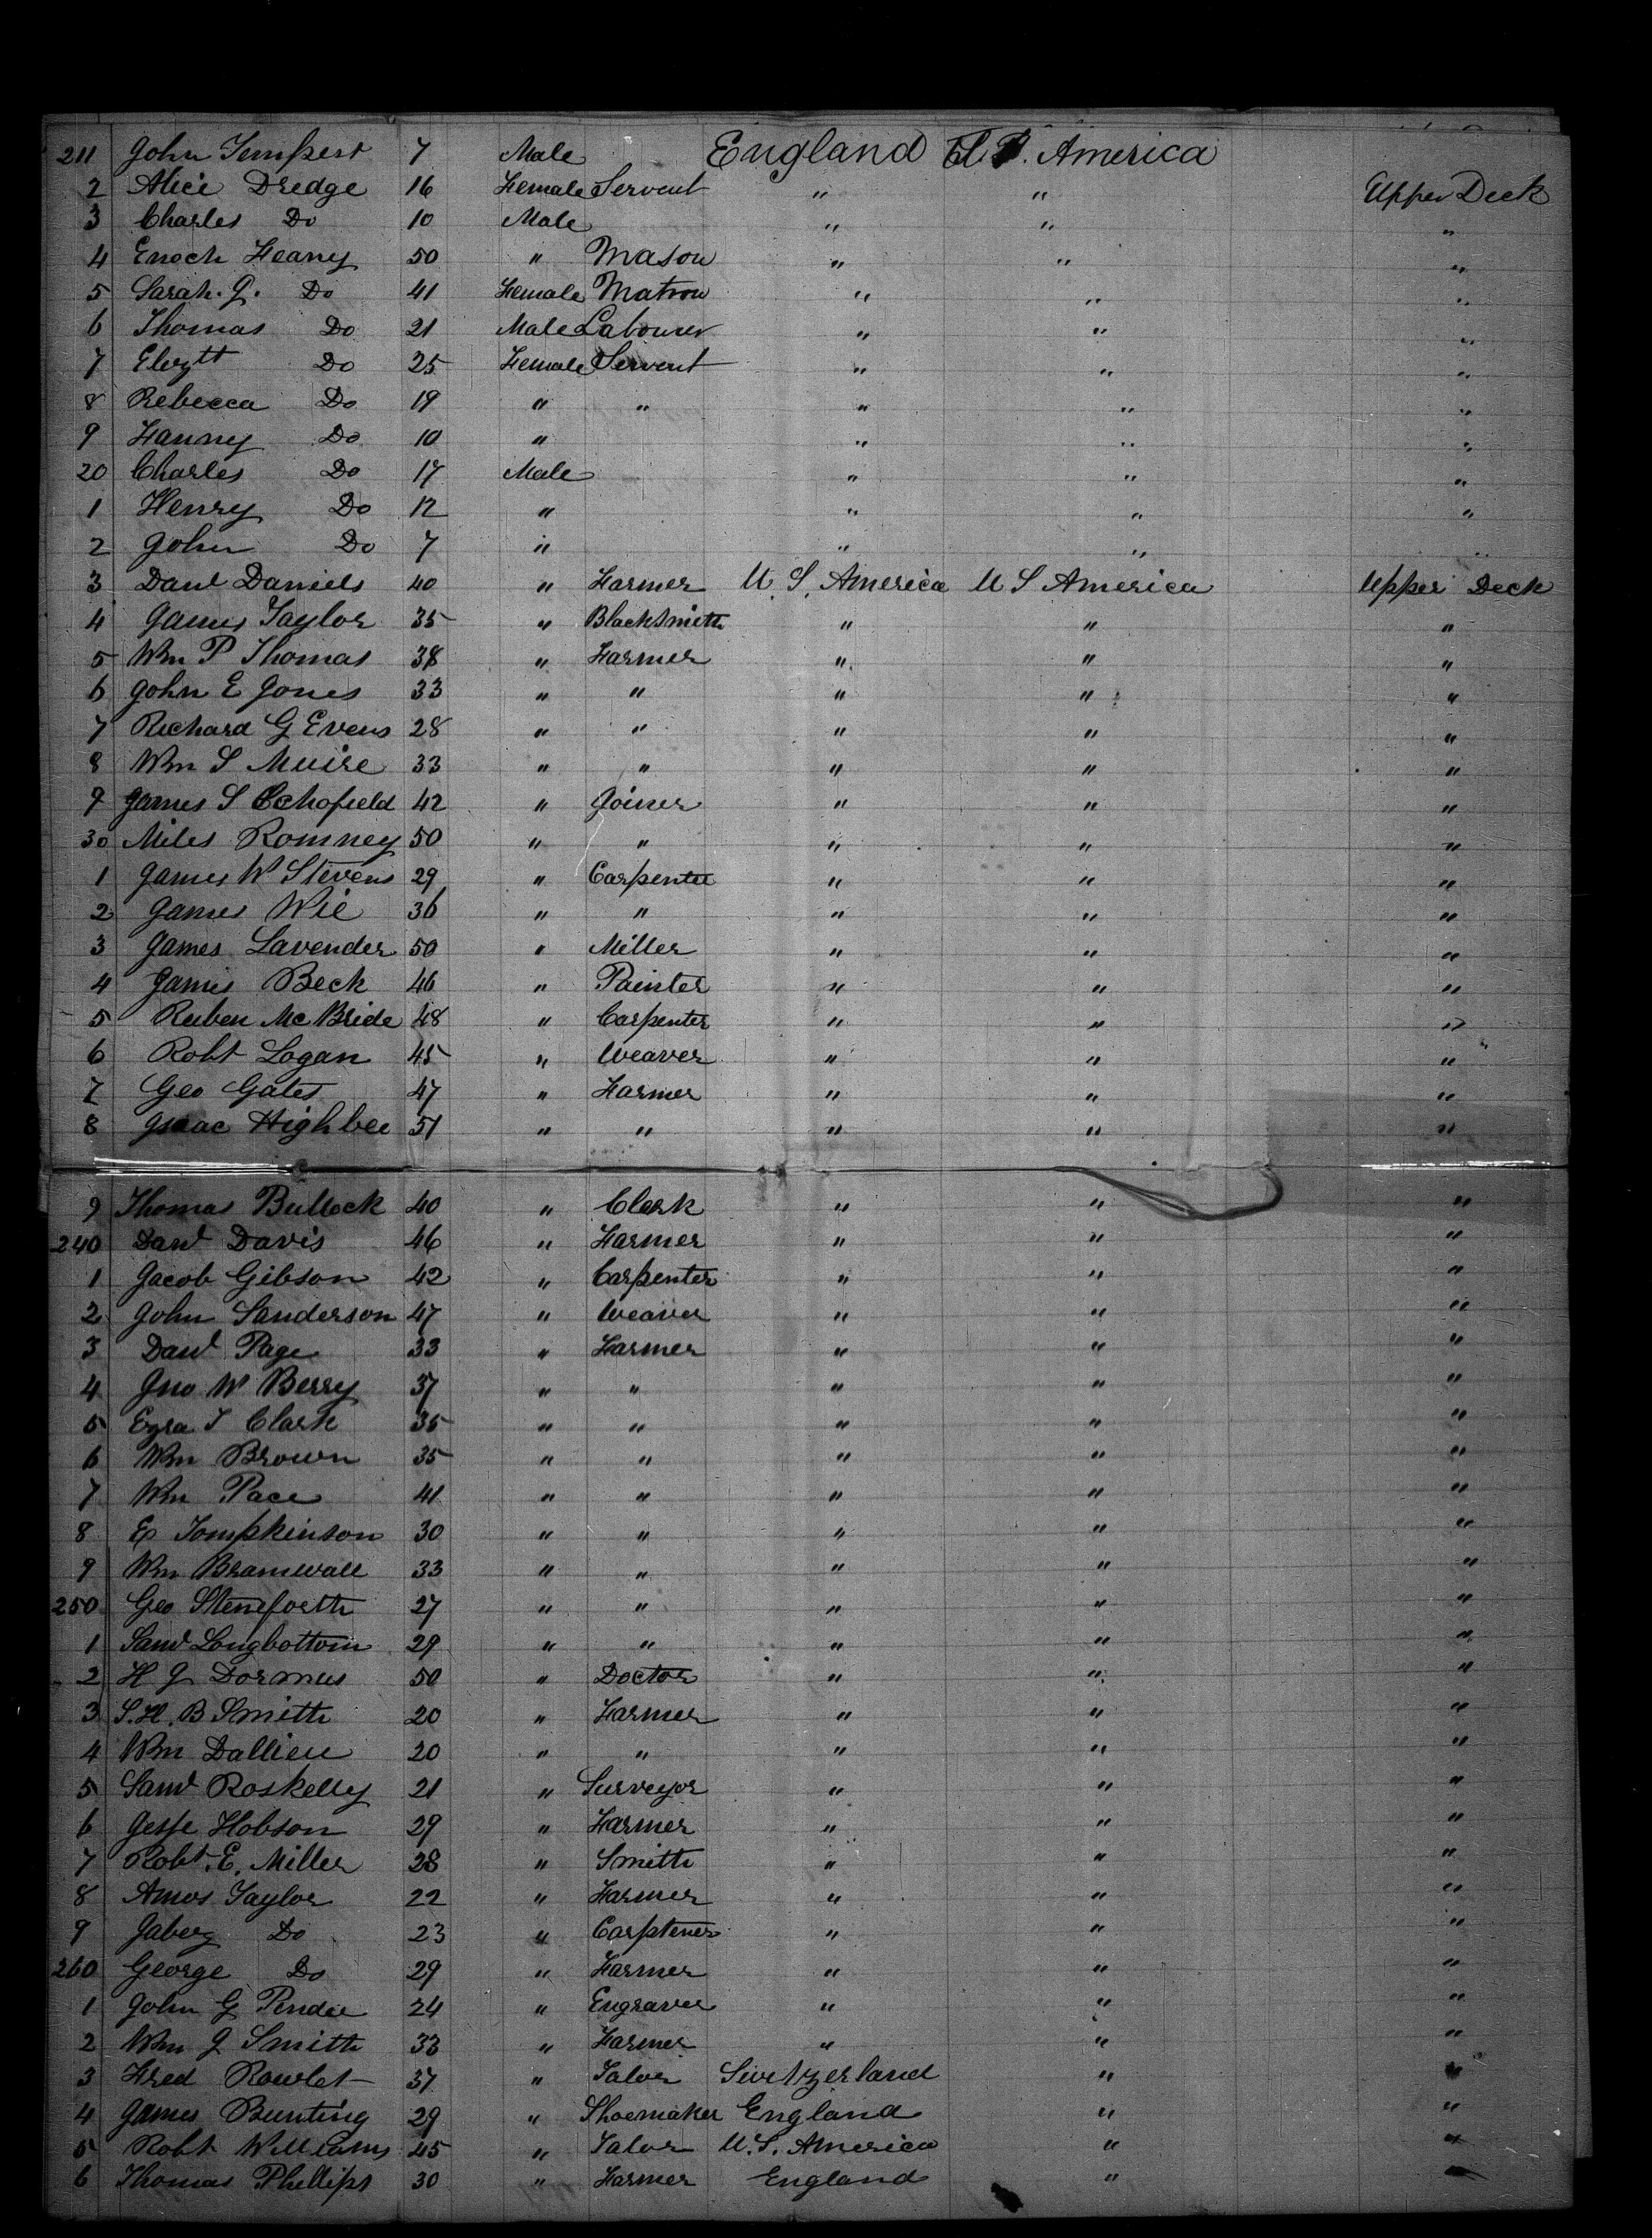 211 John Tempest 7 Male England U S. America
2 Alice Dredge 16 Female Servent " " Upper Deck
3 Charles Do 10 Male " " "
4 Enoch Heany 50 " Mason " " "
5 Sarah. J. Do 41 Female Matron " " "
6 Thomas Do 21 Male Labourer " " "
7 Elizth Do 25 Female Servent " " "
8 Rebecca Do 19 " " " " "
9 Fanny Do 10 " " " "
20 Charles Do 17 Male " " "
1 Henry Do 12 " " " "
2 John Do 7 " " " "
3 Danl Daniels 40 " Farmer U. S. America U S America Upper Deck
4 James Taylor 35 " Blacksmith " " "
5 Wm P Thomas 38 " Farmer " " "
6 John E Jones 33 " " " " "
7 Richard G Evens 28 " " " " "
8 Wm S Muire 33 " " " " "
9 James S Schofield 42 " Joiner " " "
30 Miles Romney 50 " " " " "
1 James W Stevens 29 " Carpenter " " "
2 James Wie 36 " " " " "
3 James Lavender 50 " Miller " " "
4 James Beck 46 " Painter " " "
5 Ruben Mc Bride 48 " Carpenter " " "
6 Robt Logan 45 " Weaver " " "
7 Geo Gates 47 " Farmer " " "
8 Isaac Highbee 51 " " " " "
9 Thomas Bullock 40 " Clerk " " "
240 Danl Davis 46 " Farmer " " "
1 Jacob Gibson 42 " Carpenter " " "
2 John Sanderson 47 " Weaver " " "
3 Danl Page 33 " Farmer " " "
4 Jno W Berry 37 " " " " "
5 Ezra T Clark 35 " " " " "
6 Wm Brown 35 " " " " "
7 Wm Pace 41 " " " " "
8 E Tompkinson 30 " " " " "
9 Wm Bramwall 33 " " " " "
250 Geo Steneforth 27 " " " " "
1 Saml Longbottom 29 " " " " "
2 H J Dormus 50 " Doctor " " "
3 S. H. B Smith 20 " Farmer " " "
4 Wm Dallien 20 " " " " "
5 Saml Roskelly 21 " Surveyor " " "
6 Jesse Hobson 29 " Farmer " " "
7 Robt. E. Miller 28 " Smith " " "
8 Amos Taylor 22 " Farmer " " "
9 Jabez Do 23 " Carptener " " "
260 George Do 29 " Farmer " " "
1 John G Pendie 24 " Engraver " " "
2 Wm J Smith 33 " Farmer " " "
3 Fred Rowlet 37 " Talor Switzerland " "
4 James Bunting 29 " Shoemaker England " "
5 Robt Williams 45 " Talor U.S. America " "
6 Thomas Phillips 30 " Farmer England " "